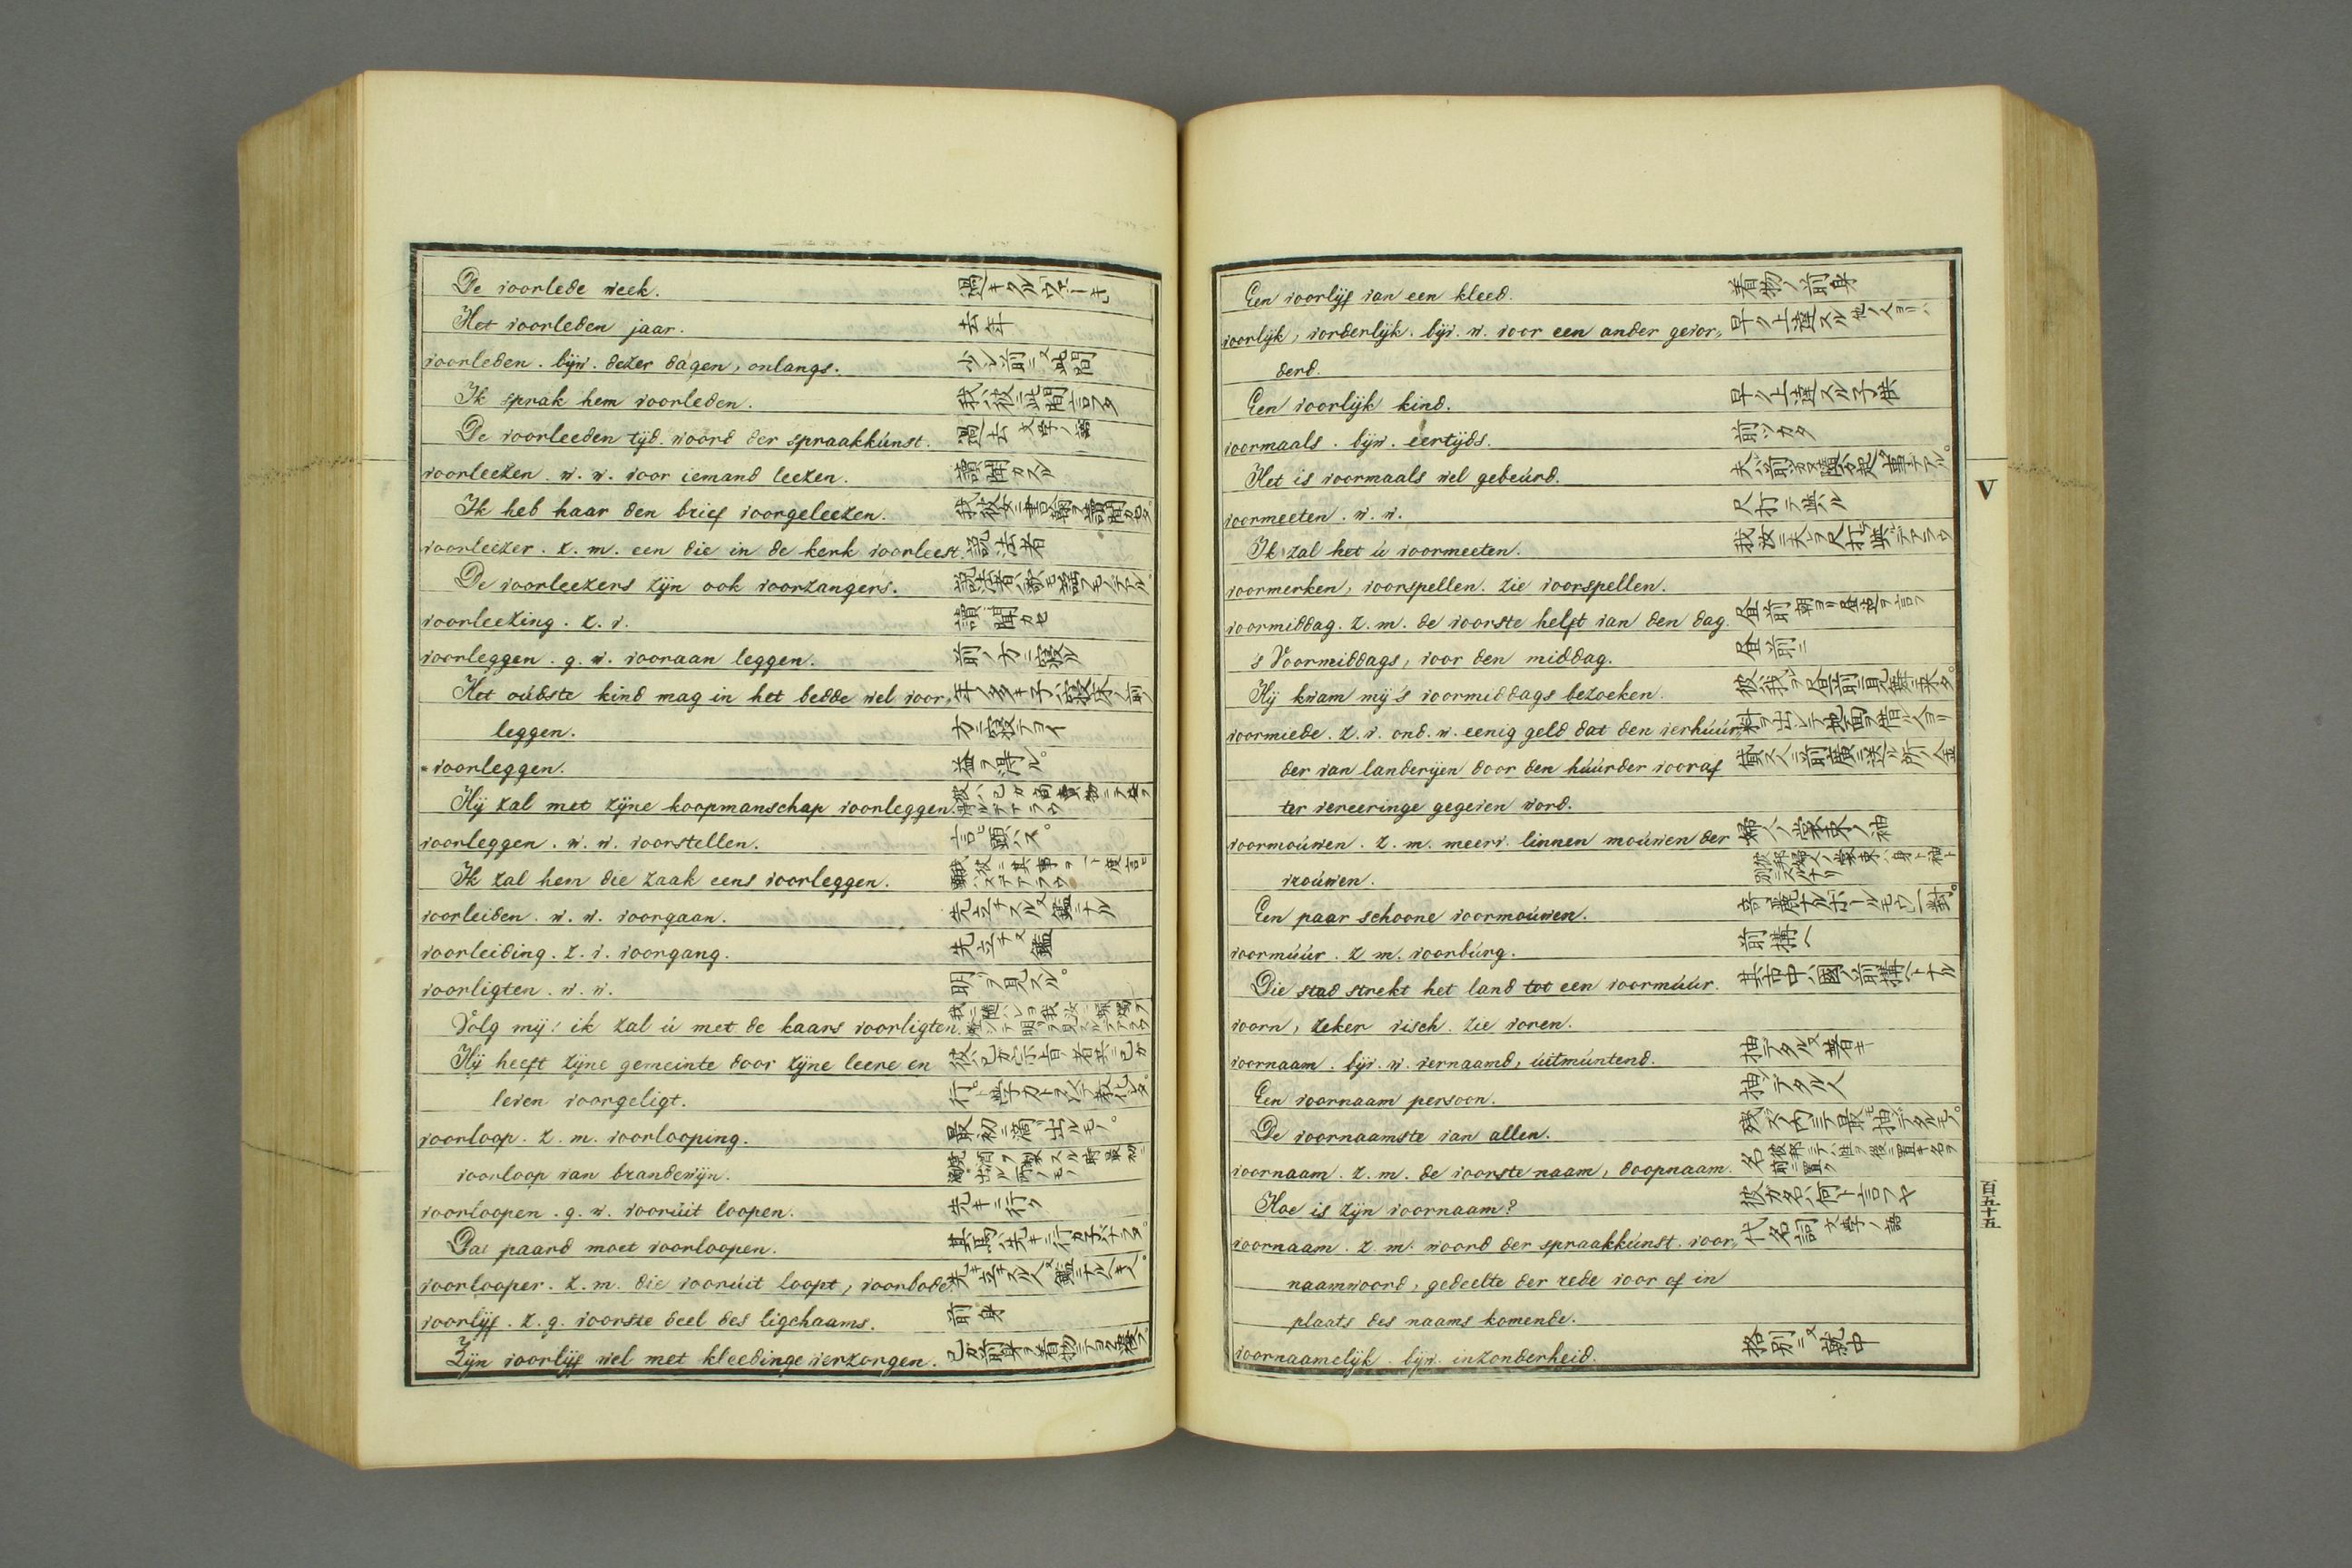 De voorlede week. 過キタルウェーキ
Het voorleden jaar. 去年
voorleden. bijw. dezer dagen, onlangs. 少シ前ニ又此間
Ik sprak hem voorleden. 我ハ彼ニ此間言フタ
De voorleeden tijd. woord der spraakkúnst. 過去 文學ノ語
voorleezen. w. w. voor iemand leezen. 讀聞カスル
Ik heb haar den brief voorgeleezen. 我彼女ニ書翰ヲ讀聞カセタ
voorleezer. z. m. een die in de kerk voorleest. 説法者
De voorleezers zijn ook voorzangers.
voorleezing. z. v. 讀聞カセ
voorleggen. g. w. vooraan leggen. 前ノ方ニ寢ル
Het oúdste kind mag in het bedde wel voor„
leggen. 方ニ寢テヨイ
voorleggen. 益ヲ得ル。
Hij zal met zijne koopmanschap voorleggen.
voorleggen. w. w. voorstellen. 言ヒ顕ハス。
Ik zal hem die zaak eens voorleggen.
voorleiden. w. w. voorgaan. 先立チスル又鑑ニナル
voorleiding. z. v. voorgang. 先立チ又鑑
voorligten. w. w. 明リヲ見スル。
Volg mij: ik zal ú met de kaars voorligten.
Hij heeft zijne gemeinte door zijne leere en
leven voorgeligt.
voorloop. z. m. voorlooping. 最初ニ滴リ出ルモノ。
voorloop van brandewijn.
voorloopen. g. w. voorúit loopen. 先キニ行ク
Dat paard moet voorloopen. 其馬ハ先キニ行カ子バナラヌ。
voorlooper. z. m. die voorúit loopt, voorbode.
voorlijf. z. g. voorste deel des ligchaams. 前身
Zijn voorlijf wel met kleedinge verzorgen.
Een voorlijf van een kleed. 着物ノ前身
voorlijk, vorderlijk. bijv. w. voor een ander gevor„ 早ク上達スル他ノ人ヨリハ
derd.
Een voorlijk kind. 早ク上達スル子供
voormaals. bijw. eertijds. 前ツカタ
Het is voormaals wel gebeúrd.
voormeeten. w. w. 尺打テ與ル
Ik zal het ú voormeeten.
voormerken, voorspellen. zie voorspellen.
voormiddag. z. m. de voorste helft van den dag. 昼前 朝ヨリ昼迄ヲ言フ
's Voormiddags, voor den middag. 昼前ニ
Hij kwam mij 's voormiddags bezoeken. 彼ハ我ヲ昼前ニ見舞ニ来タ。
voormiede. z. v. ond. w. eenig geld dat den verhúúr„
der van landerijen door den húúrder vooraf
ter vereeringe gegeven word.
voormoúwen. z. m. meerv. linnen moúwen der 婦人ノ裳束ノ袖
vroúwen.
Een paar schoone voormoúwen.
voormúúr. z. m. voorbúrg. 前構ヘ
Die stad strekt het land tot een voormúúr. 其市中ハ國ノ前構ヘトナル
voorn, zeker visch. zie voren.
voornaam. bijv. w. vernaamd, úitmúntend. 抽デタル又著キ
Een voornaam persoon. 抽デタル人
De voornaamste van allen.
voornaam. z. m. de voorste naam, doopnaam. 名 彼邦ニテハ姓ヲ後ニ置キ名ヲ前ニ置ク
Hoe is zijn voornaam? 彼カ名ハ何ト言フヤ
voornaam. z. m. woord der spraakkúnst. voor„ 代名詞 文學ノ語
naamwoord, gedeelte der rede voor of in
plaats des naams komende.
voornaamelijk. bijw. inzonderheid. 格別ニ又就中
V
百五十五